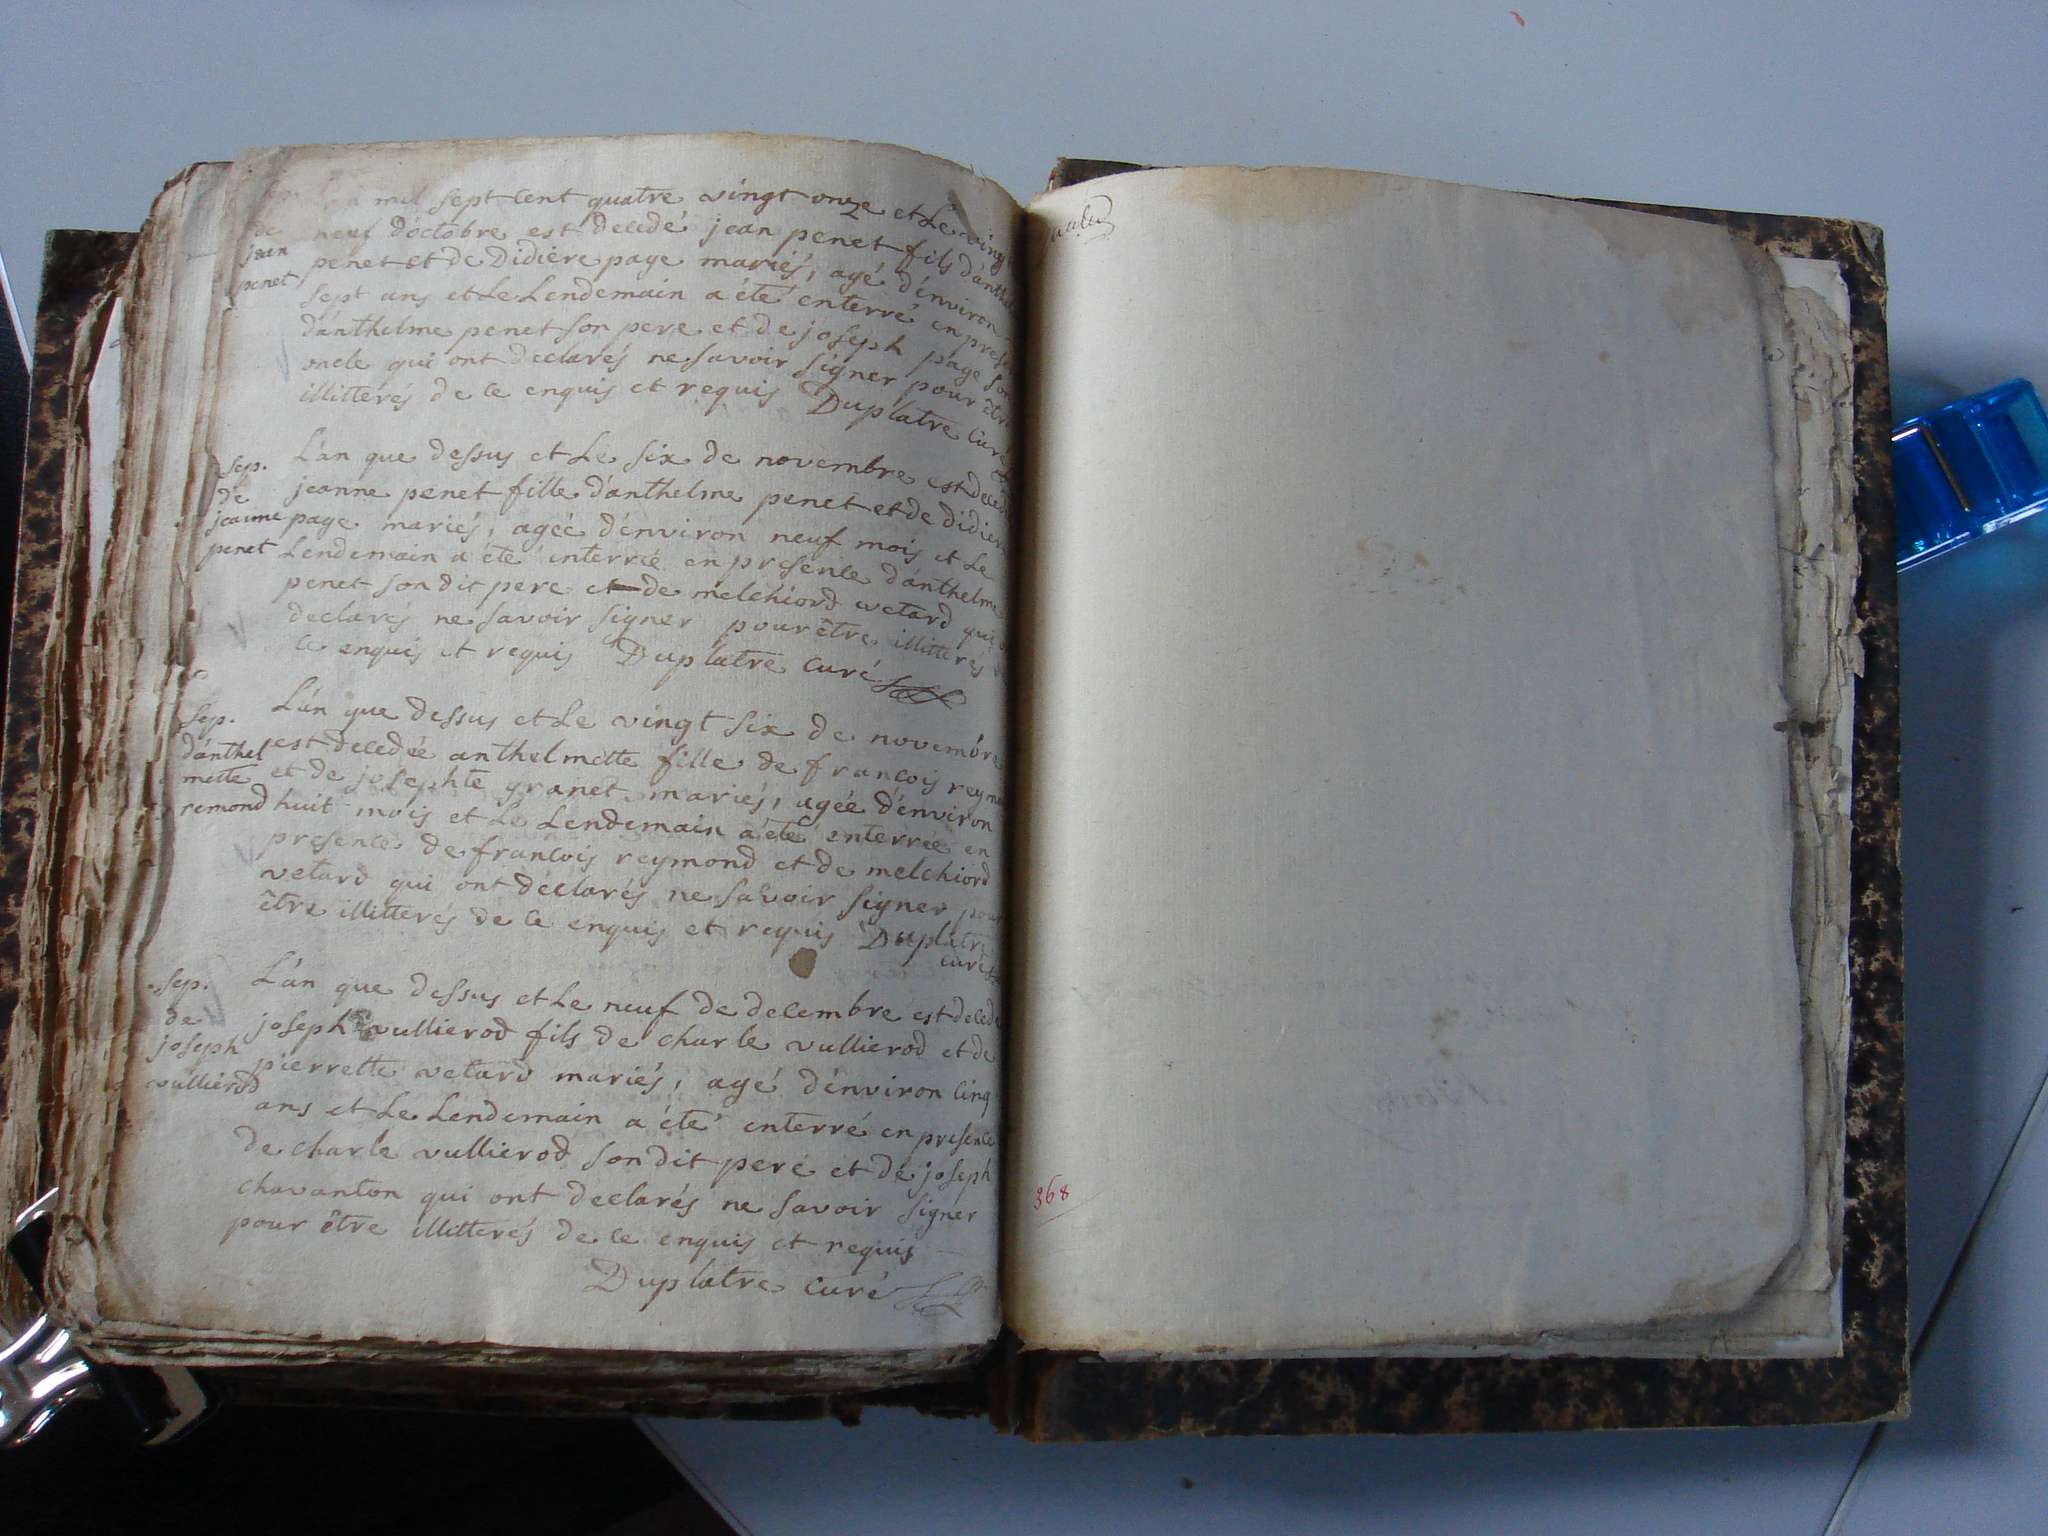 mil sept cent quatre vingt onze et Le vingt
de neuf d'octobre est decedé jean penet fils d'anthelme
jean penet et de Didiere page mariés, agé d'environ
penet sept ans et Le Lendemain a été enterré en presence
d'anthelme penet son pere et de joseph page son
oncle qui ont declarés ne savoir signer pour être
illitterés de ce enquis et requis Duplatre Curé
sep. L'an que dessus et Le six de novembre est decedée
de jeanne penet fille d'anthelme penet et de didiere
jeanne page mariés, agée d'environ neuf mois et Le
penet Lendemain a été enterrée en presence d'anthelme
penet son dit pere et de melchiord vetard qui
declarés ne savoir signer pour être illitterés
ce enquis et requis Duplatre curé
sep. L'an que dessus et Le vingt six de novembre
d'anthel est decedée anthelmette fille de francois reymond
mette et de josephte granet mariés, agée d'environ
remond huit mois et Le Lendemain a été enterrée en
presence de francois reymond et de melchiord
vetard qui ont déclarés ne savoir signer pour
être illitterés de ce enquis et requis Duplatre
curé
sep. L'an que dessus et Le neuf de decembre est decedé
de joseph vullierod fils de charle vullierod et de
joseph pierrette vetard mariés, agé d'environ cinq
vullierod ans et Le Lendemain a été enterré en presence
de charle vullierod son dit peré et de joseph
chavanton qui ont declarés ne savoir signer
pour être illitterés de ce enquis et requis
Duplatre curé
368